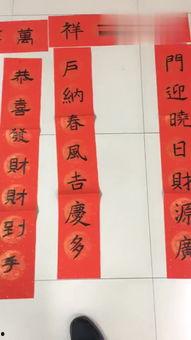 門迎曉日財源廣
戶納春風吉慶多
恭喜發財財到手
萬
祥